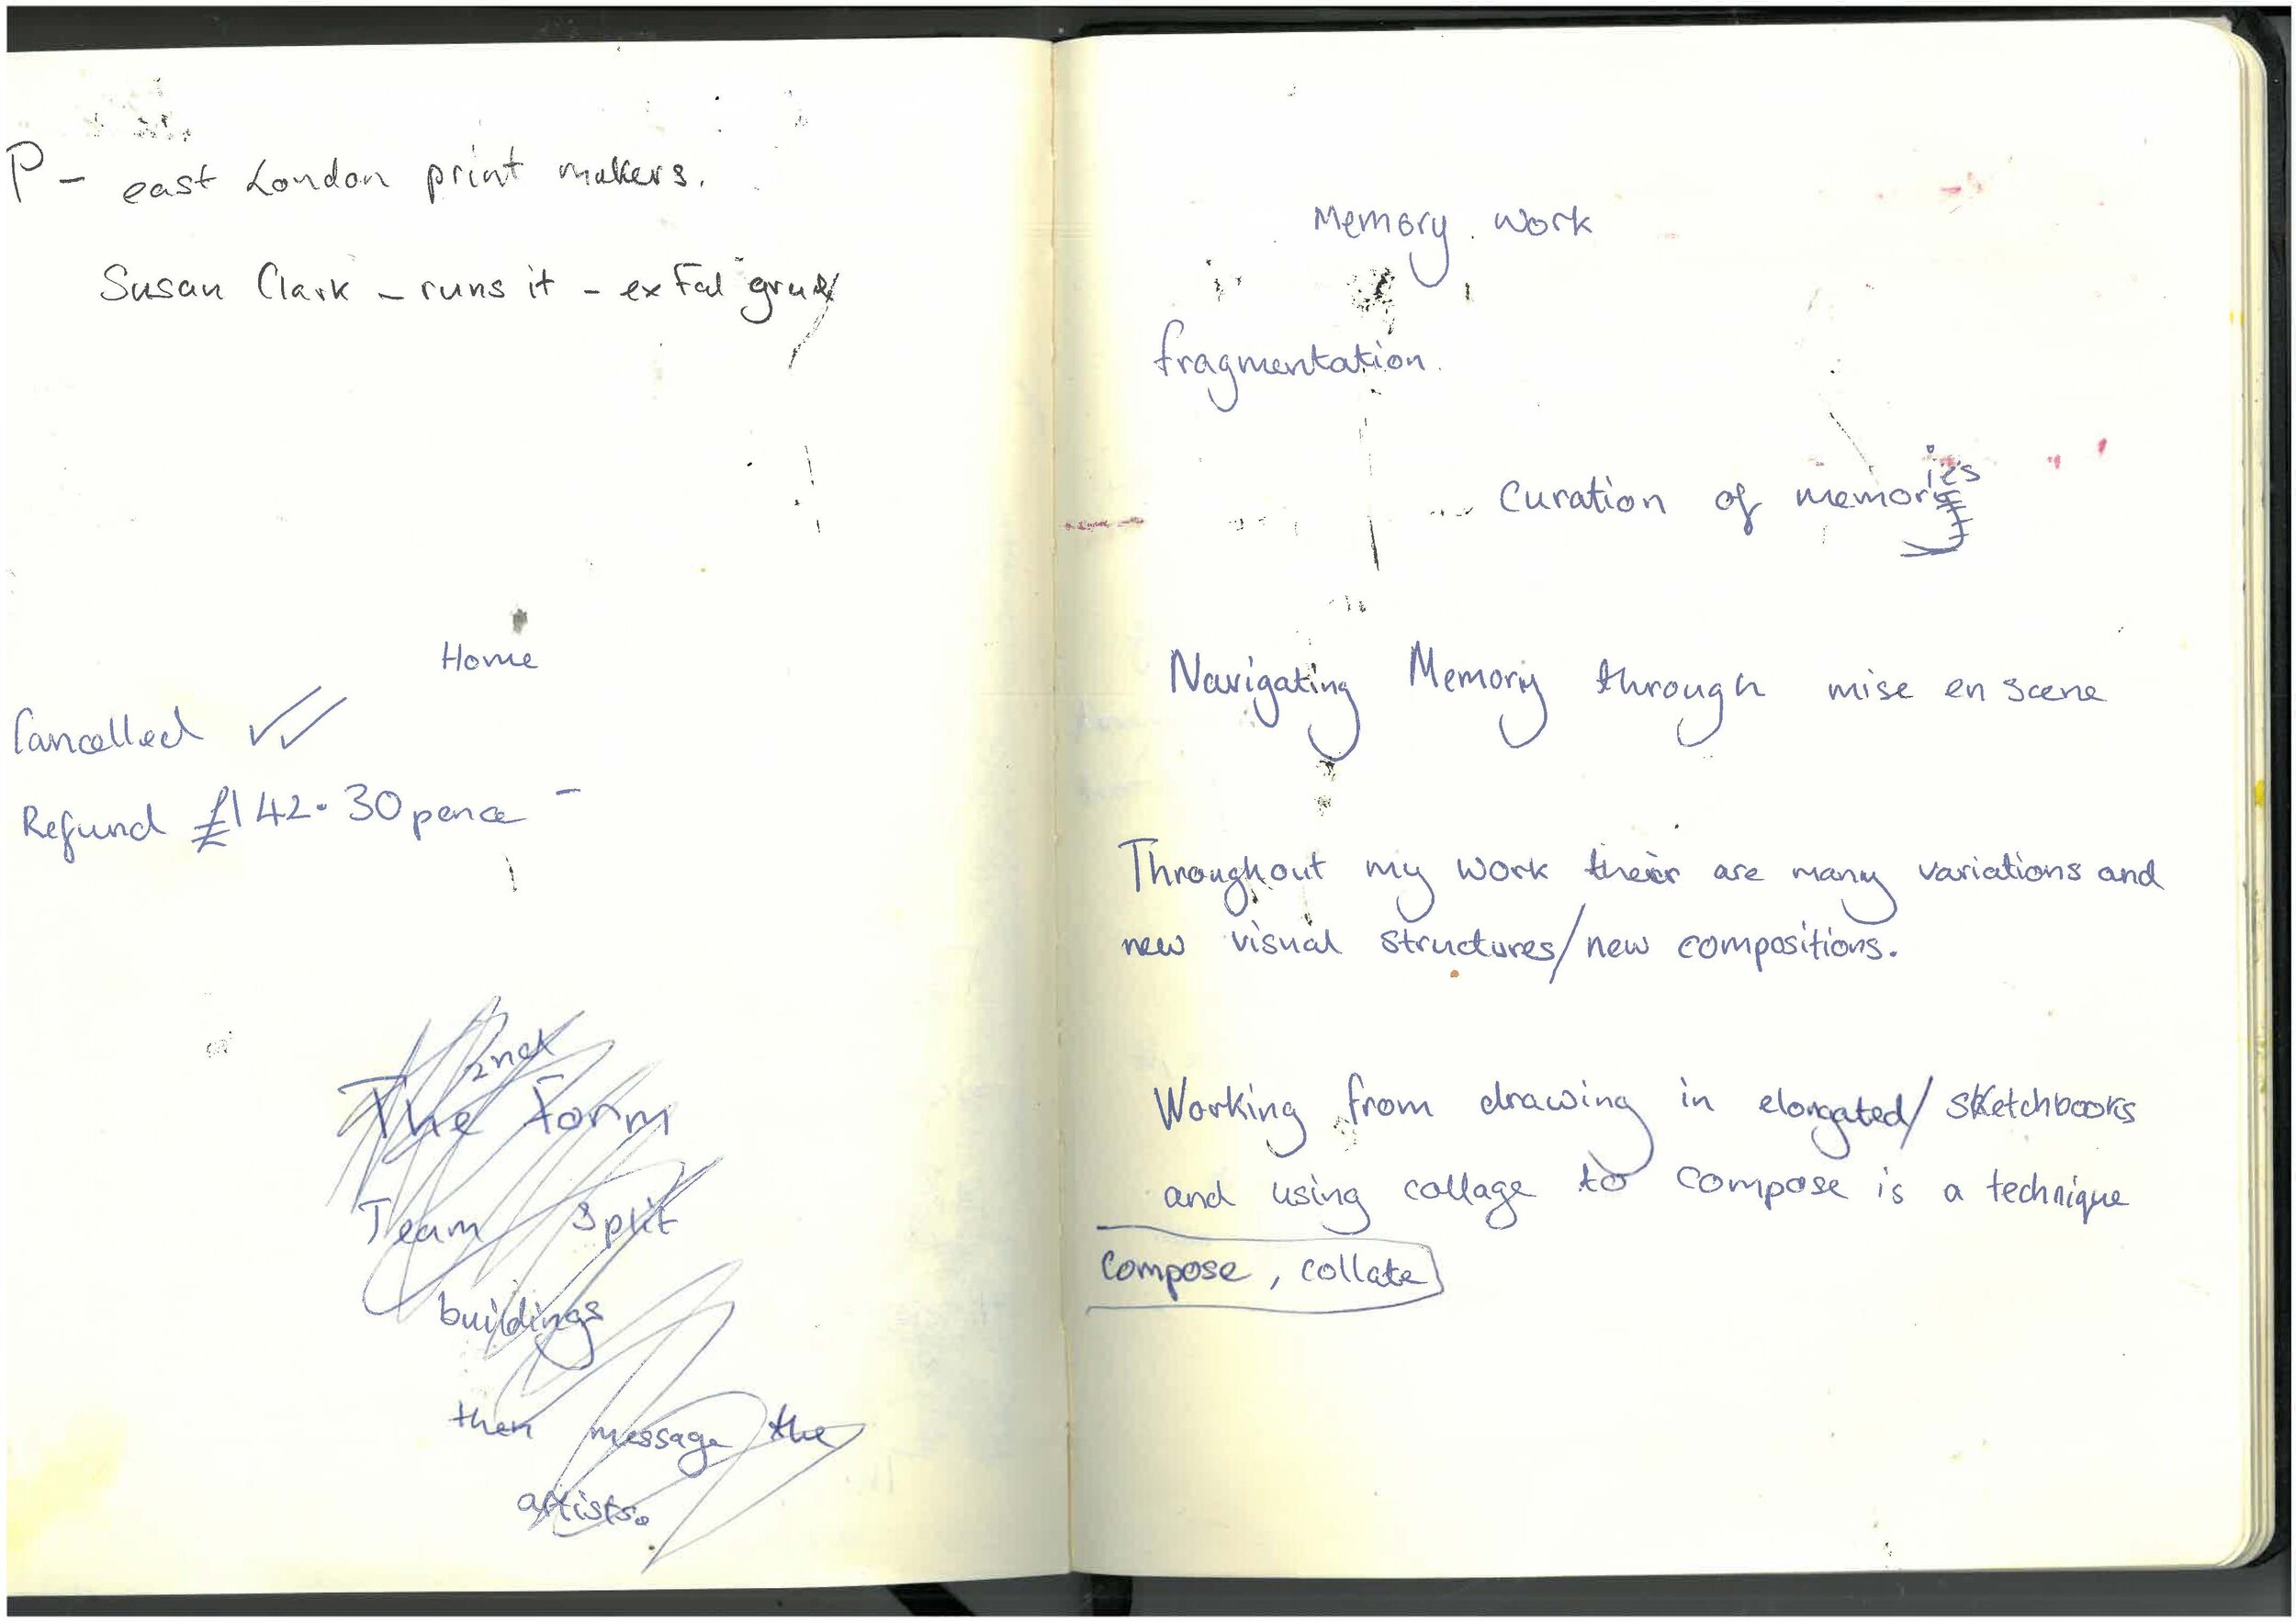 P - east London print makers.
Susan Clark - runs it - ex Fal
Home
Cancelled ✓✓
Refund £142.30 pence -
2nd
The Form
Team Split
buildings
then message the
artists.
Memory work
fragmentation.
Curation of memories
Navigating Memory through mise en scene
Throughout my work their are many variations and
new visual structures/new compositions.
Working from drawing in elongated/ sketchbooks
and using collage to compose is a technique
compose, collate